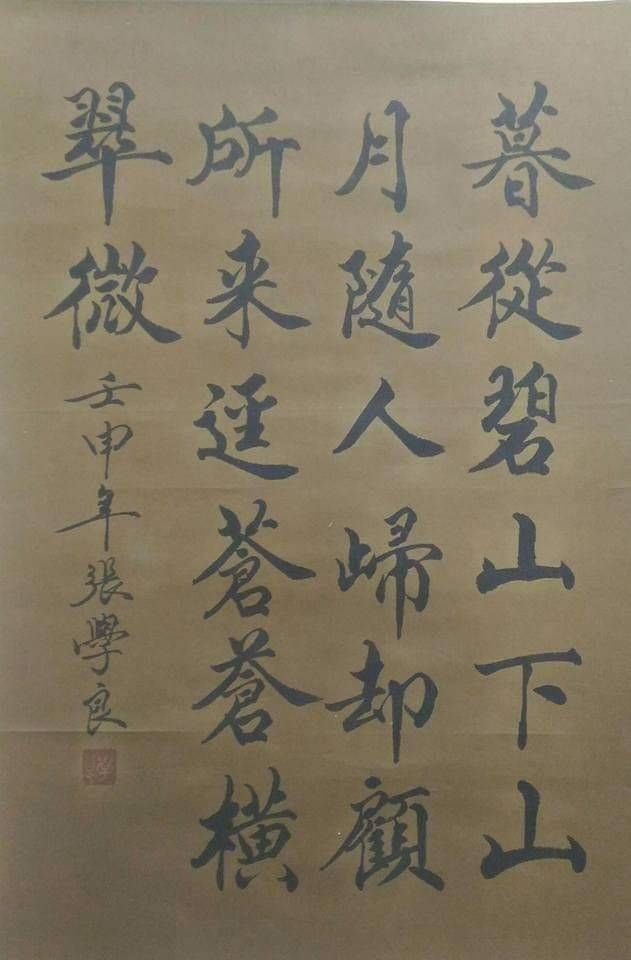 暮從碧山下山
月隨人歸却顧
所来逕蒼蒼橫
翠微
壬申年張學良